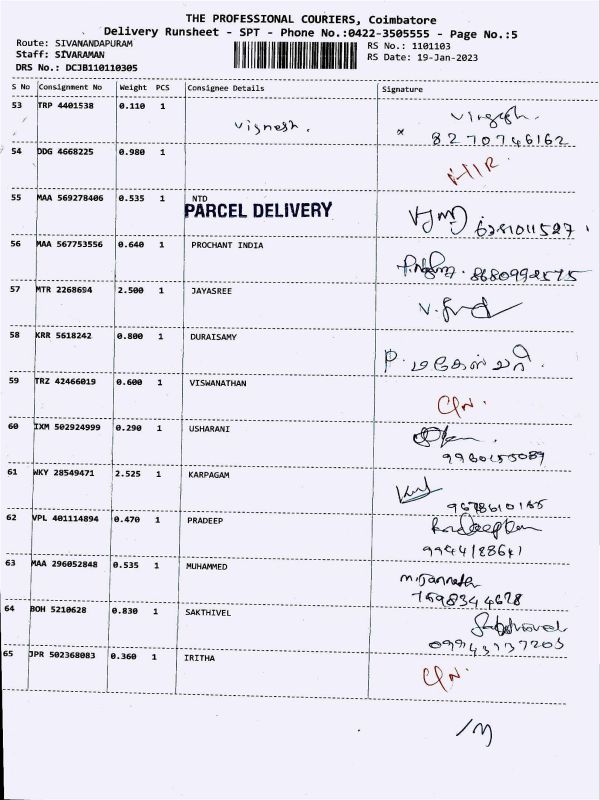 THE PROFESSIONAL COURIERS, Coimbatore
Delivery Runsheet - SPT - Phone No.:0422-3505555 - Page No.:5
Route: SIVANANDAPURAM
Staff: SIVARAMAN
DRS No.: DCJB110110305
RS No.: 1101103
RS Date: 19-Jan-2023
S No Consignment No Weight PCS Consignee Details Signature
53 TRP 4401538 0.110 1
Vignesh. x
8270746162
54 DDG 4668225 0.980 1
55 MAA 569278406 0.535 1 NTD
PARCEL DELIVERY
6281011527
56 MAA 567753556 0.640 1 PROCHANT INDIA
8680992575
57 MTR 2268694 2.500 1 JAYASREE
58 KRR 5618242 0.800 1 DURAISAMY
P. மகேஸ்வரி.
59 TRZ 42466019 0.600 1 VISWANATHAN
60 IXM 502924999 0.290 1 USHARANI
61 WKY 28549471 2.525 1 KARPAGAM
62 VPL 401114894 0.470 1 PRADEEP
63 MAA 296052848 0.535 1 MUHAMMED
7698344678
64 BOH 5210628 0.830 1 SAKTHIVEL
65 JPR 502368083 0.360 1 IRITHA